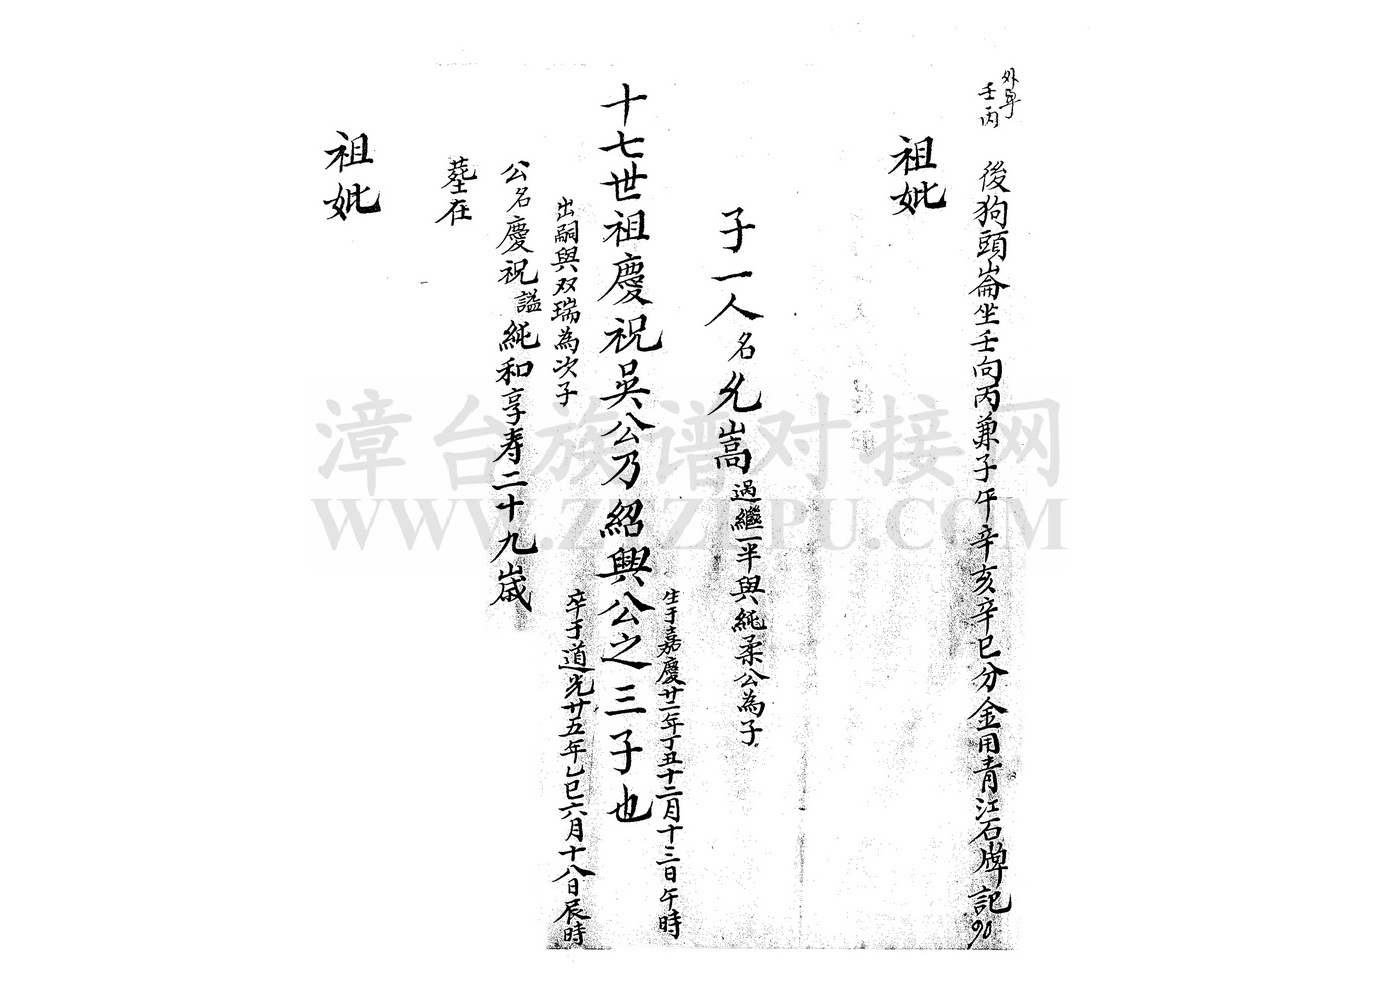 外卑
壬丙
後狗頭崙坐壬向丙兼子午辛亥辛巳分金用青江石牌記
90
祖妣
子一人名允嵩過繼一半與純柔公為子
生于嘉慶廿二年丁丑十二月十三日午時
十七世祖慶祝吳公乃紹興公之三子也
卒于道光廿五年乙巳六月十八日辰時
出嗣與双瑞為次子
公名慶祝謚純和享寿二十九歲
塟在
祖妣
漳台族谱对接网
WWW.ZTZUPU.COM